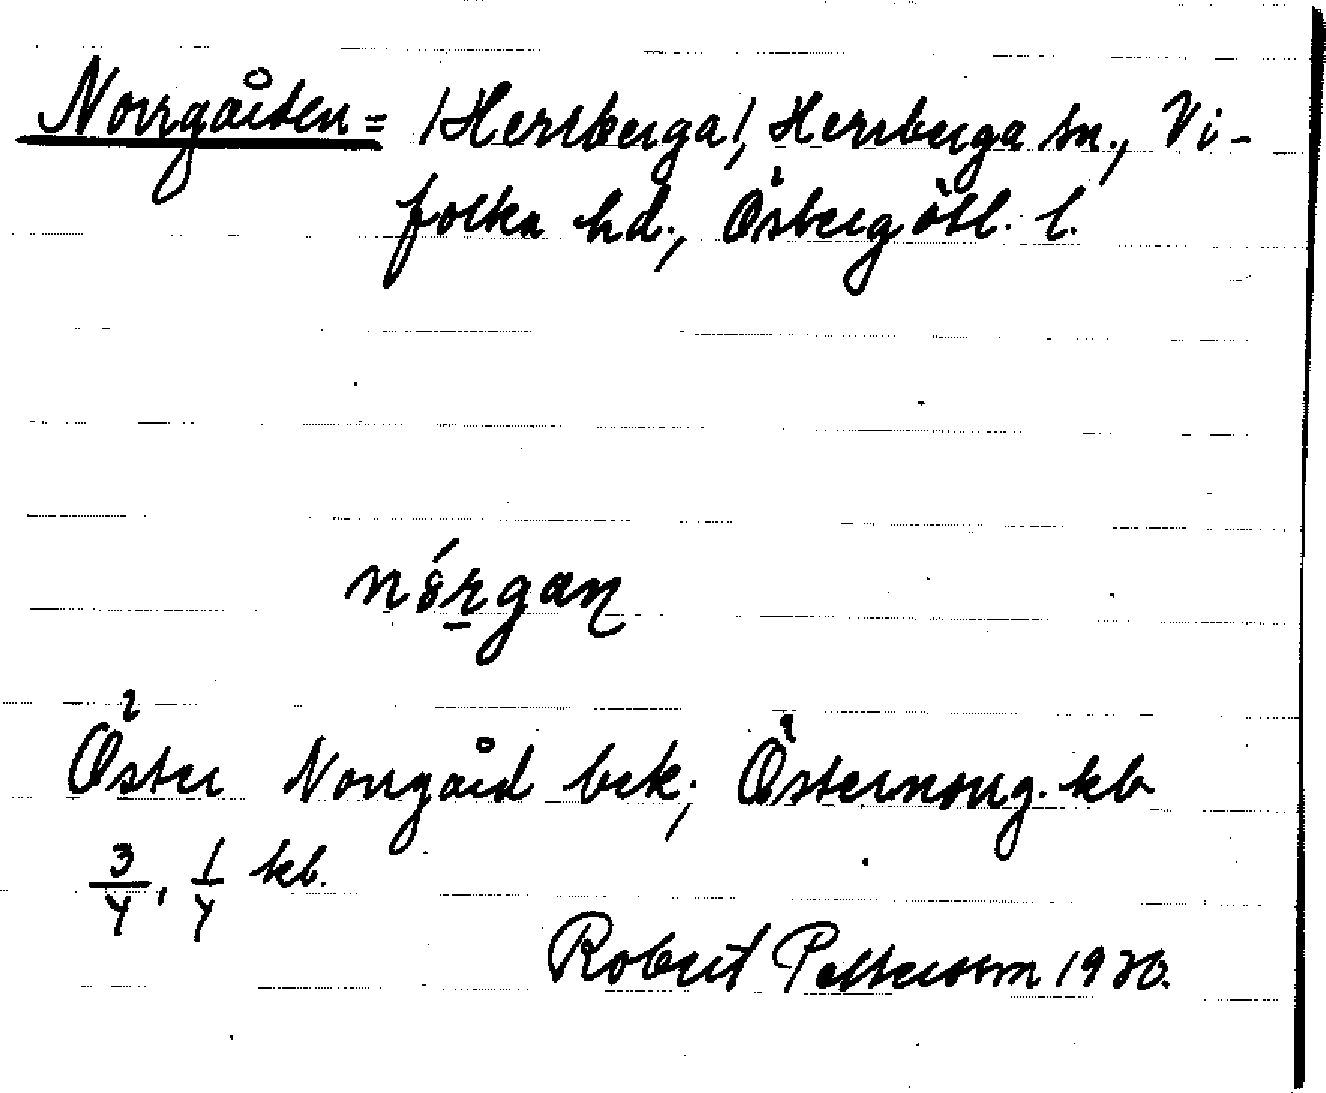 Norrgården = /Herrberga/, Herrberga sn., Vi-
folka hd., Östergötl. l.
nórgaɳ
Öster Norrgård bek; Östernorrg. kb
3/4, 1/4 kb.
Robert Pettersson 1930.